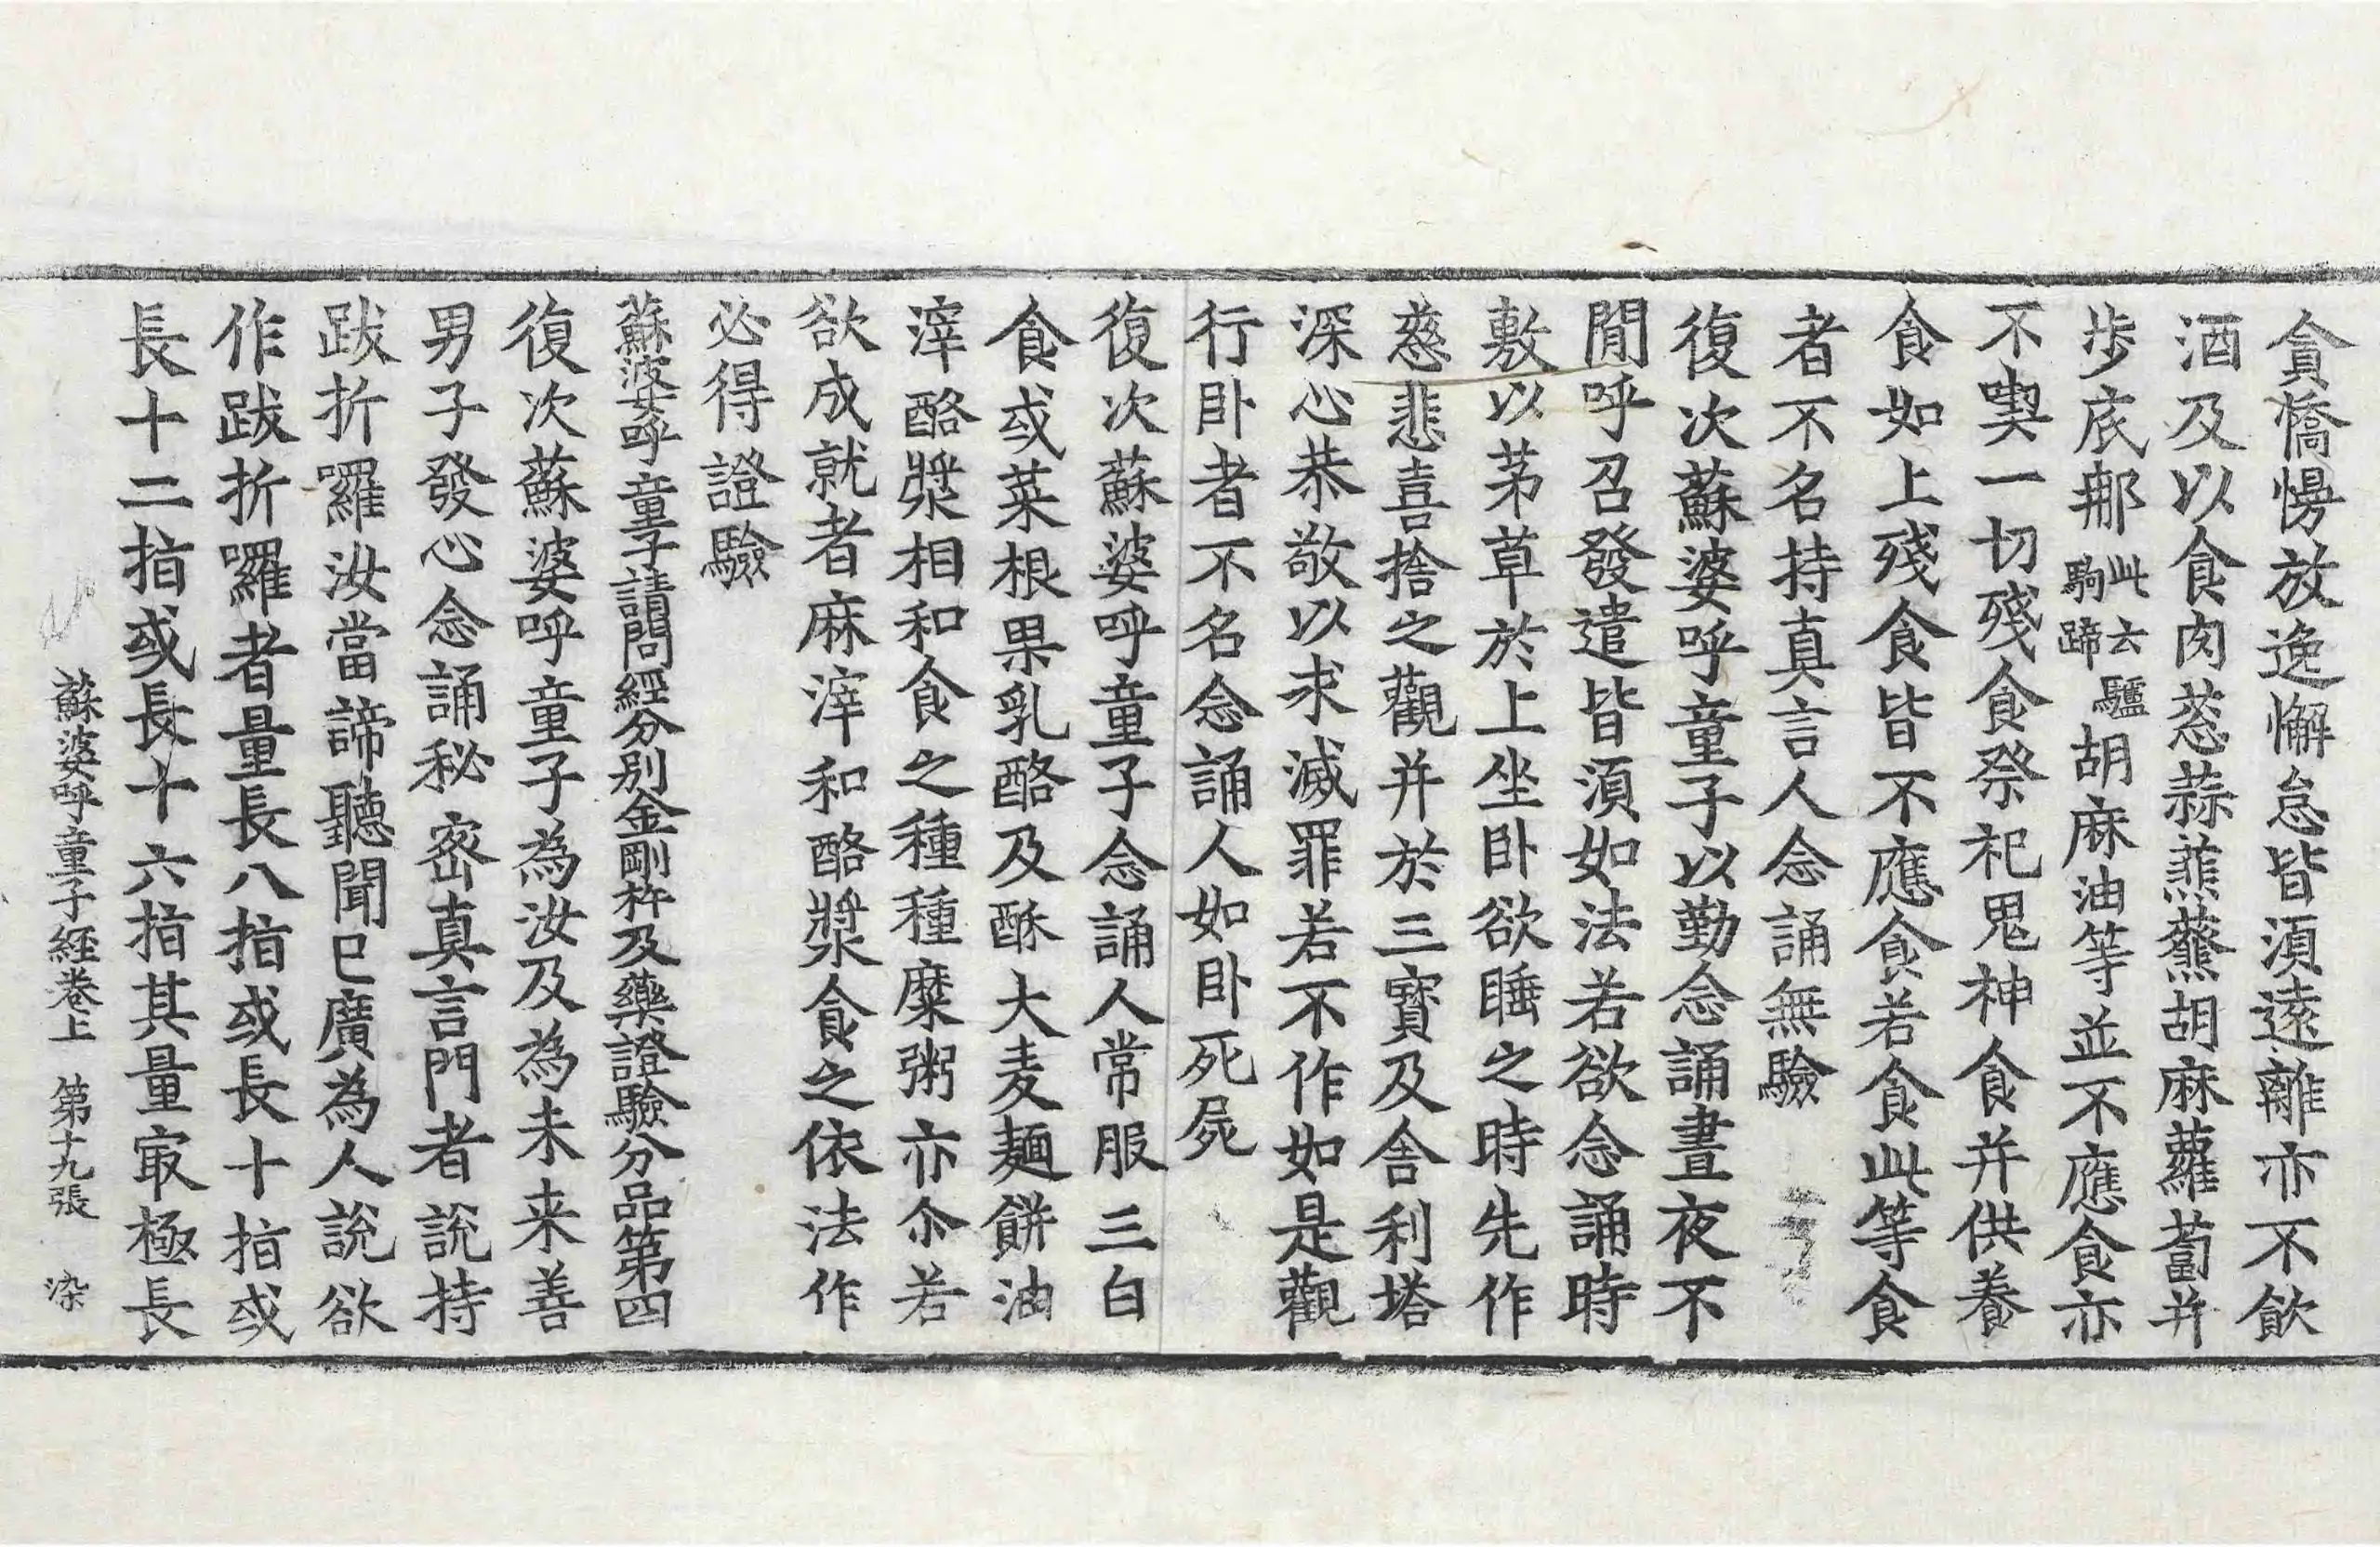 貪憍慢放逸懈怠皆湏遠離亦不飲
酒及以食肉葱蒜薤胡麻蘿蔔并
步底那此云驢駒蹄胡麻油等並不應食亦
不喫一切殘食祭祀鬼神食并供養
食如上殘食皆不應食若食此等食
者不名持真言人念誦無驗
復次蘇婆呼童子以勤念誦晝夜不
閒呼召發遣皆湏如法若欲念誦時
敷以茅草於上坐卧欲睡之時先作
慈悲喜捨之觀并於三寶及舍利塔
深心恭敬以求滅罪若不作如是觀
行卧者不名念誦人如卧死屍
復次蘇婆呼童子念誦人常服三白
食或菜根果乳酪及酥大麦麺餅油
滓酪漿相和食之種種糜粥亦尒若
欲成就者麻滓和酪漿食之依法作
必得證驗
蘇婆呼童子請問經分別金剛杵及藥證驗分品第四
復次蘇婆呼童子為汝及為未来善
男子發心念誦秘密真言門者說持
跋折囉汝當諦聽聞已廣為人說欲
作跋折囉者量長八指或長十指或
長十二指或長十六指其量㝡極長
蘇婆呼童子経卷上 第十九張 染